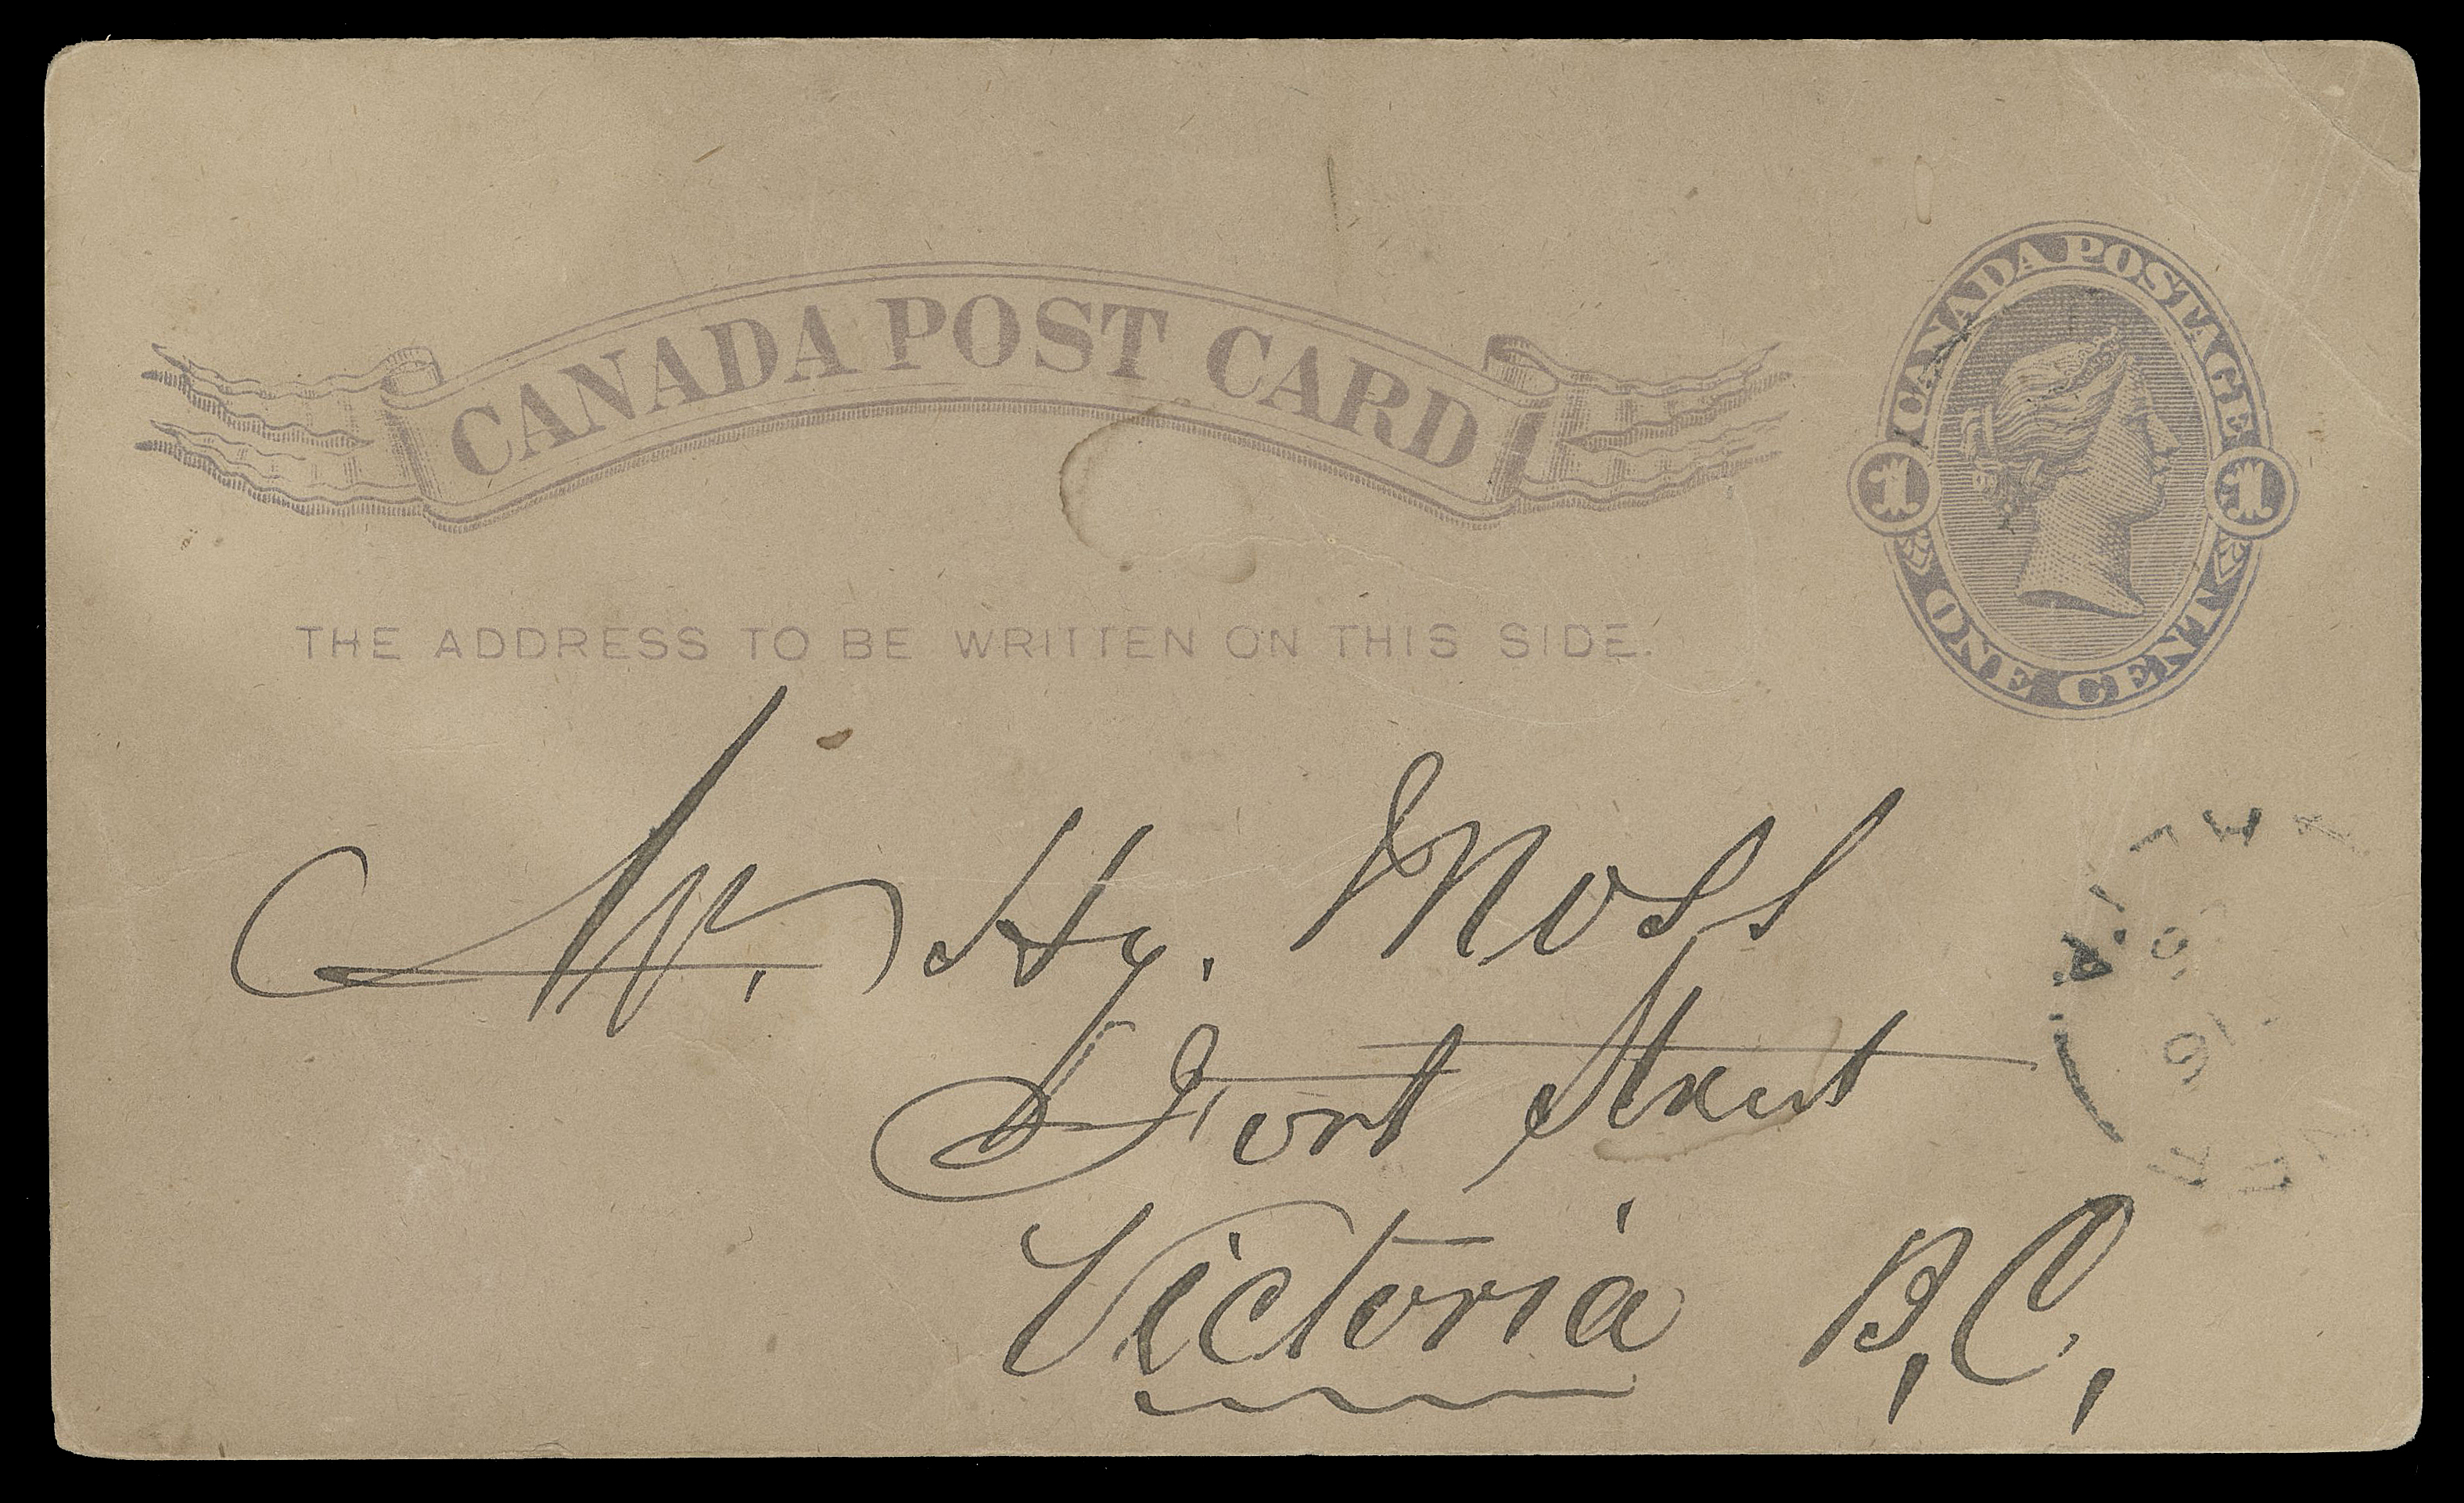 CANADA POST CARD
CANADA POSTAGE
1 1
ONE CENT
THE ADDRESS TO BE WRITTEN ON THIS SIDE.
Mr. Hy. Moss
Fort Street
Victoria B.C.